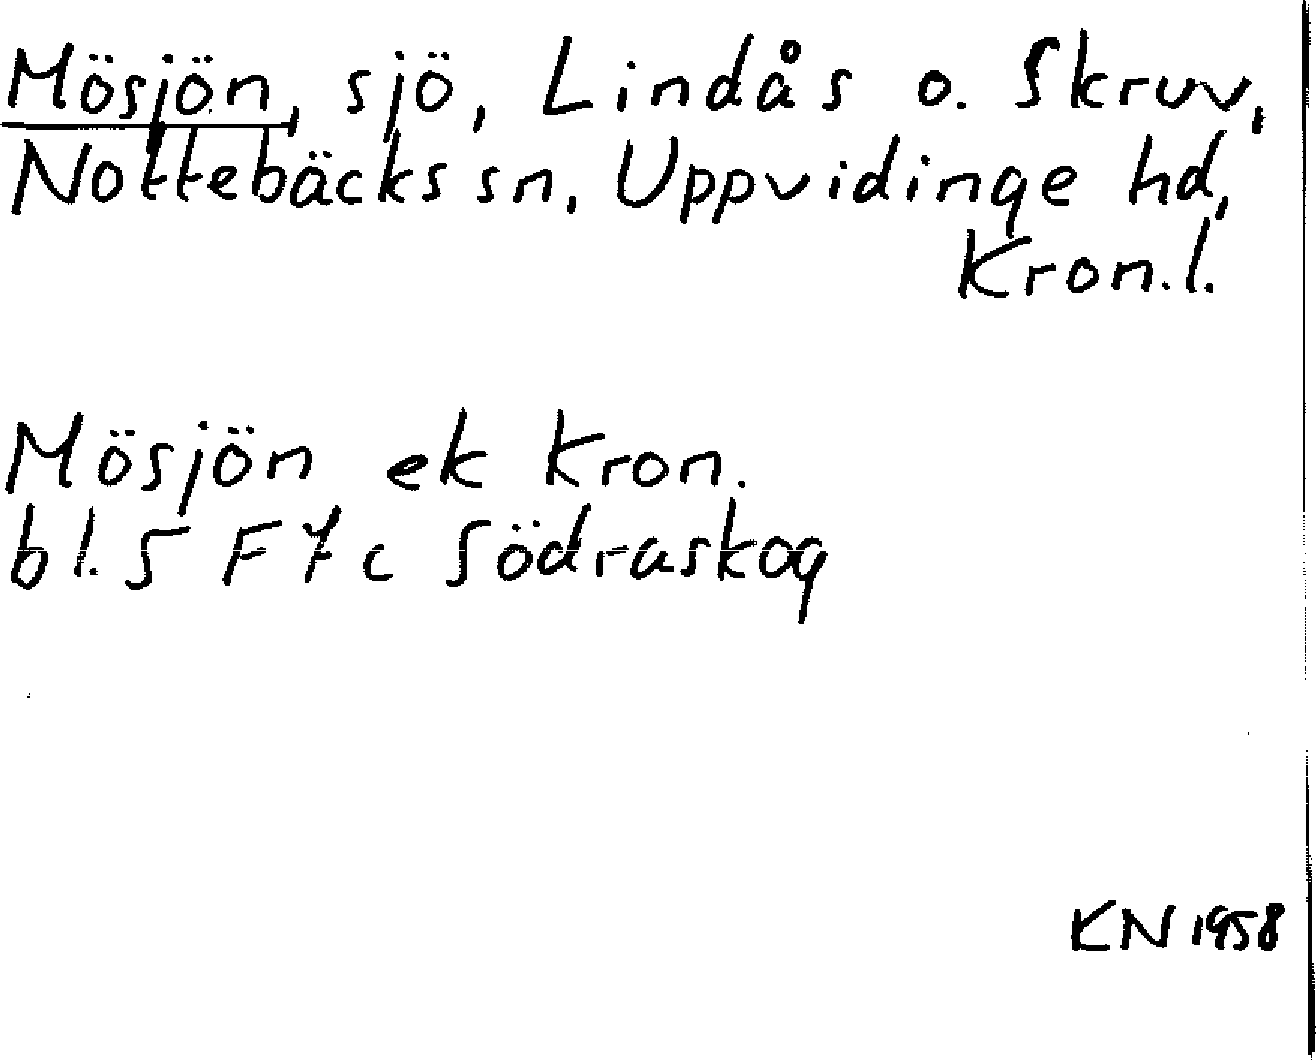 Mösjön, sjö, Lindås o. Skruv,
Nottebäcks sn, Uppvidinge hd,
Kron. l.
Mösjön ek Kron.
bl. 5 F 7 c Södraskog
KN 1958